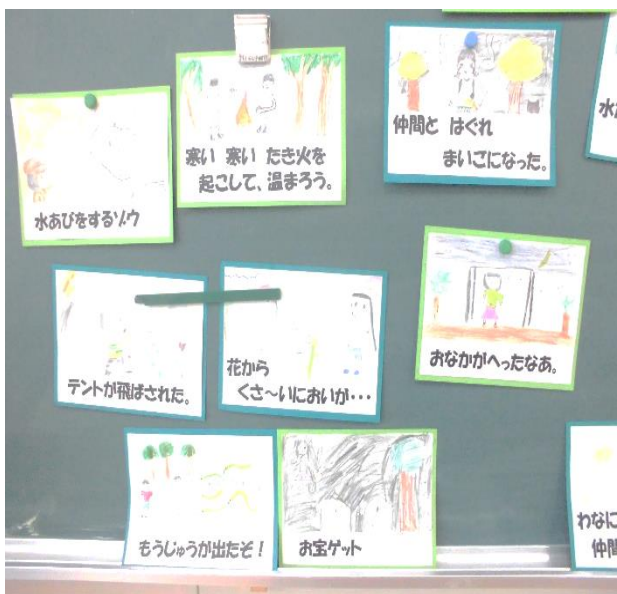 水あびをするゾウ
寒い 寒い たき火を
起こして、温まろう。
仲間と はぐれ
まいごになった。
水
テントが飛ばされた。
花から
くさ～いにおいが・・・
おなかがへったなあ。
もうじゅうが出たぞ！
お宝ゲット
わなに
仲間